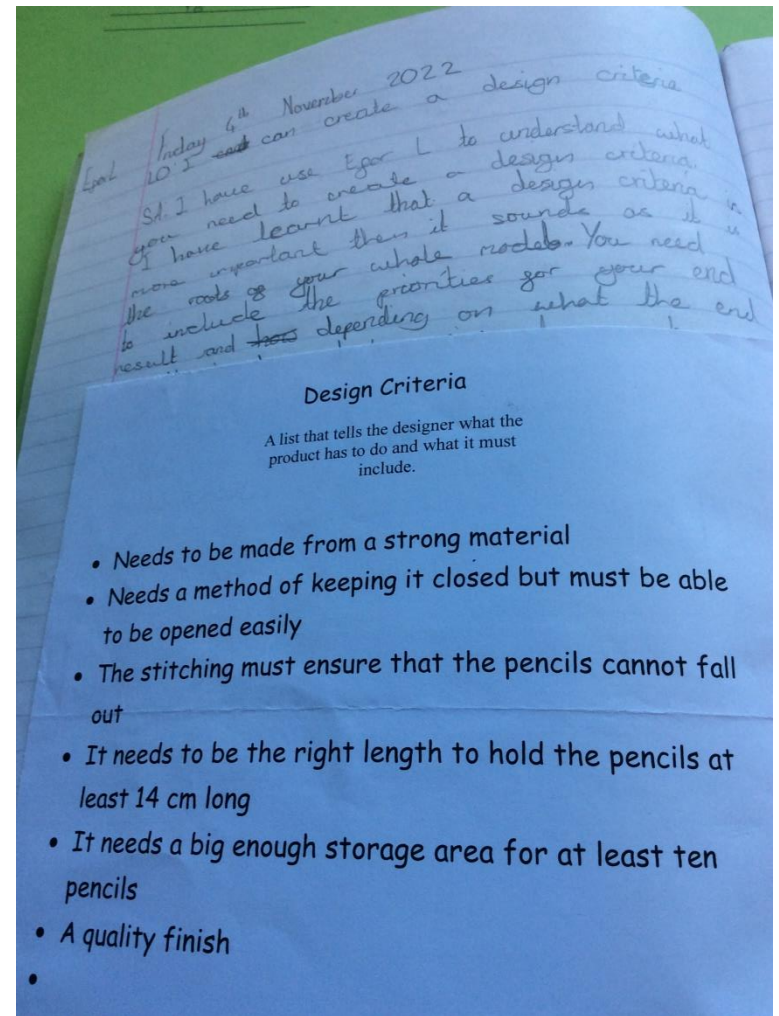 Friday 4th November 2022
LO I can create a design criteria
Sd. I have use Egar L to understand what
you need to create a design criteria.
I have learnt that a design criteria is
more important then it sounds as it is
the roots of your whole model. You need
to include the priorities for your end
result and depending on what the end
Design Criteria
A list that tells the designer what the
product has to do and what it must
include.
• Needs to be made from a strong material
• Needs a method of keeping it closed but must be able
to be opened easily
• The stitching must ensure that the pencils cannot fall
out
• It needs to be the right length to hold the pencils at
least 14 cm long
• It needs a big enough storage area for at least ten
pencils
• A quality finish
•